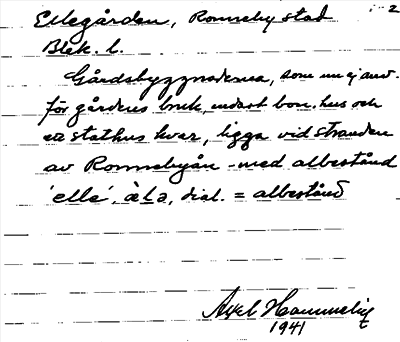 2
Ellegården, Ronneby stad
Blek. l.
Gårdsbyggnaderna, som nu ej anv.
för gårdens bruk, endast bon.hus och
ett stathus kvar, ligga vid stranden
av Ronnebyån - med albestånd
'elle', àla, dial. = albestånd
Axel
1941